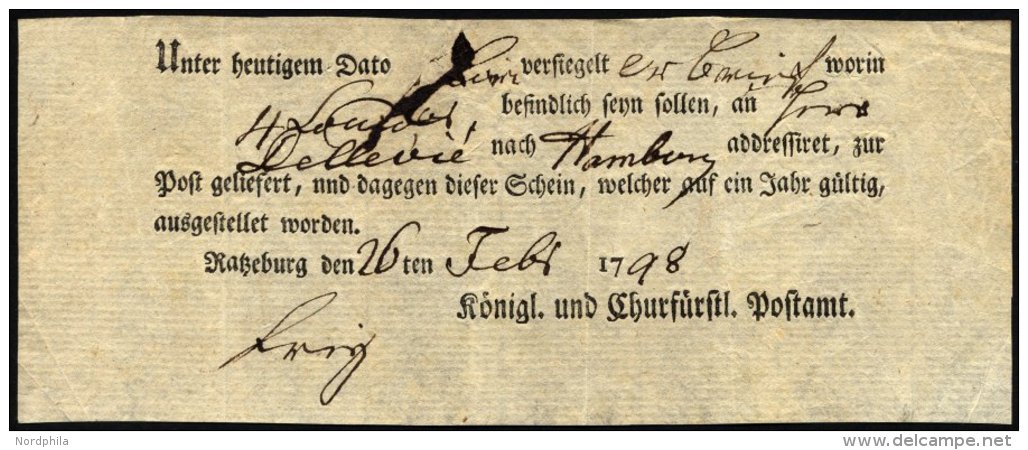 Unter heutigem Dato ein versiegelter Brief worin
4 Louisdor, befindlich seyn sollen, an Herrn
Dellevie nach Hamburg addressiret, zur
Post geliefert, nnd dagegen dieser Schein, welcher auf ein Jahr gültig,
ausgestellet worden.
Ratzeburg den 26ten Febr 1798
Königl. und Churfürstl. Postamt.
Nordphila
delcampe.net